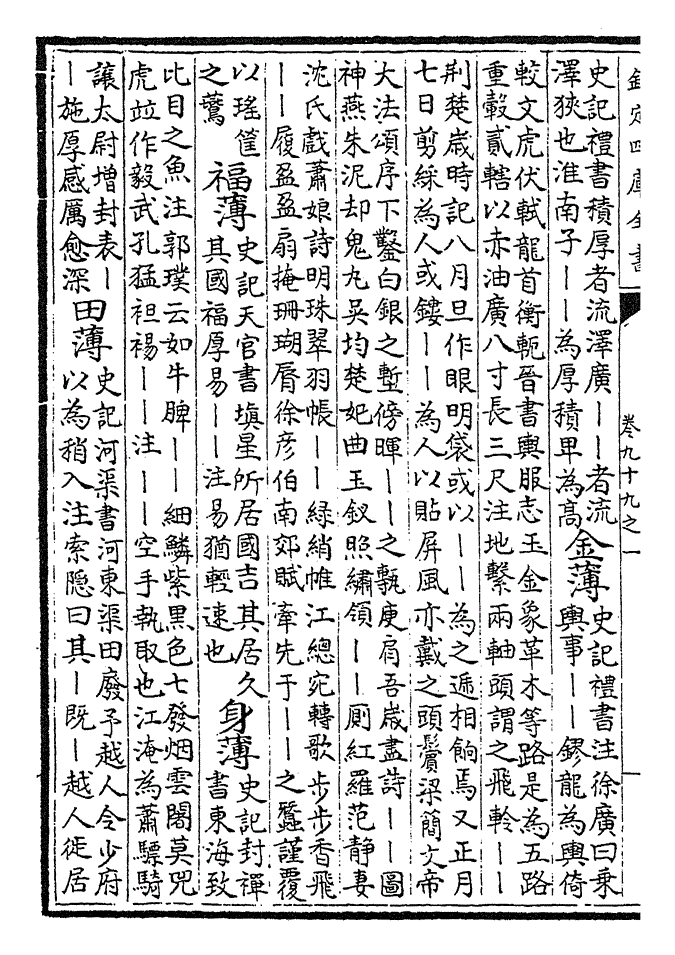 欽定四庫全書 卷九十九之一
史記禮書積厚者流澤廣——者流
澤狹也淮南子——為厚積卑為高
金薄
史記禮書注徐廣曰乘
輿事——鏐龍為輿倚
較文虎伏軾龍首衡軛晉書輿服志玉金象革木等路是為五路
重轂貳轄以赤油廣八寸長三尺注地繫兩軸頭謂之飛軨——
荆楚歲時記八月旦作眼明袋或以——為之遞相餉焉又正月
七日剪綵為人或鏤——為人以貼屏風亦戴之頭鬢梁簡文帝
大法頌序下鑿白銀之塹傍暉——之埶庾肩吾歲盡詩——圖
神燕朱泥却鬼丸吳均楚妃曲玉釵照繡領——厠紅羅范静妻
沈氏戲蕭娘詩明珠翠羽帳——綠綃帷江總宛轉歌步步香飛
——履盈盈扇掩珊瑚脣徐彦伯南郊賦牽先于——之蠶謹覆
以瑤筐
之蠒
福薄
史記天官書填星所居國吉其居久
其國福厚易——注易猶輕速也
身薄
史記封禪
書東海致
比目之魚注郭璞云如牛脾——細鱗紫黑色七發烟雲闇莫兕
虎竝作毅武孔猛袒裼——注——空手執取也江淹為蕭驃騎
讓太尉增封表—
—施厚感厲愈深
田薄
史記河渠書河東渠田廢予越人令少府
以為稍入注索隐曰其—既—越人徙居